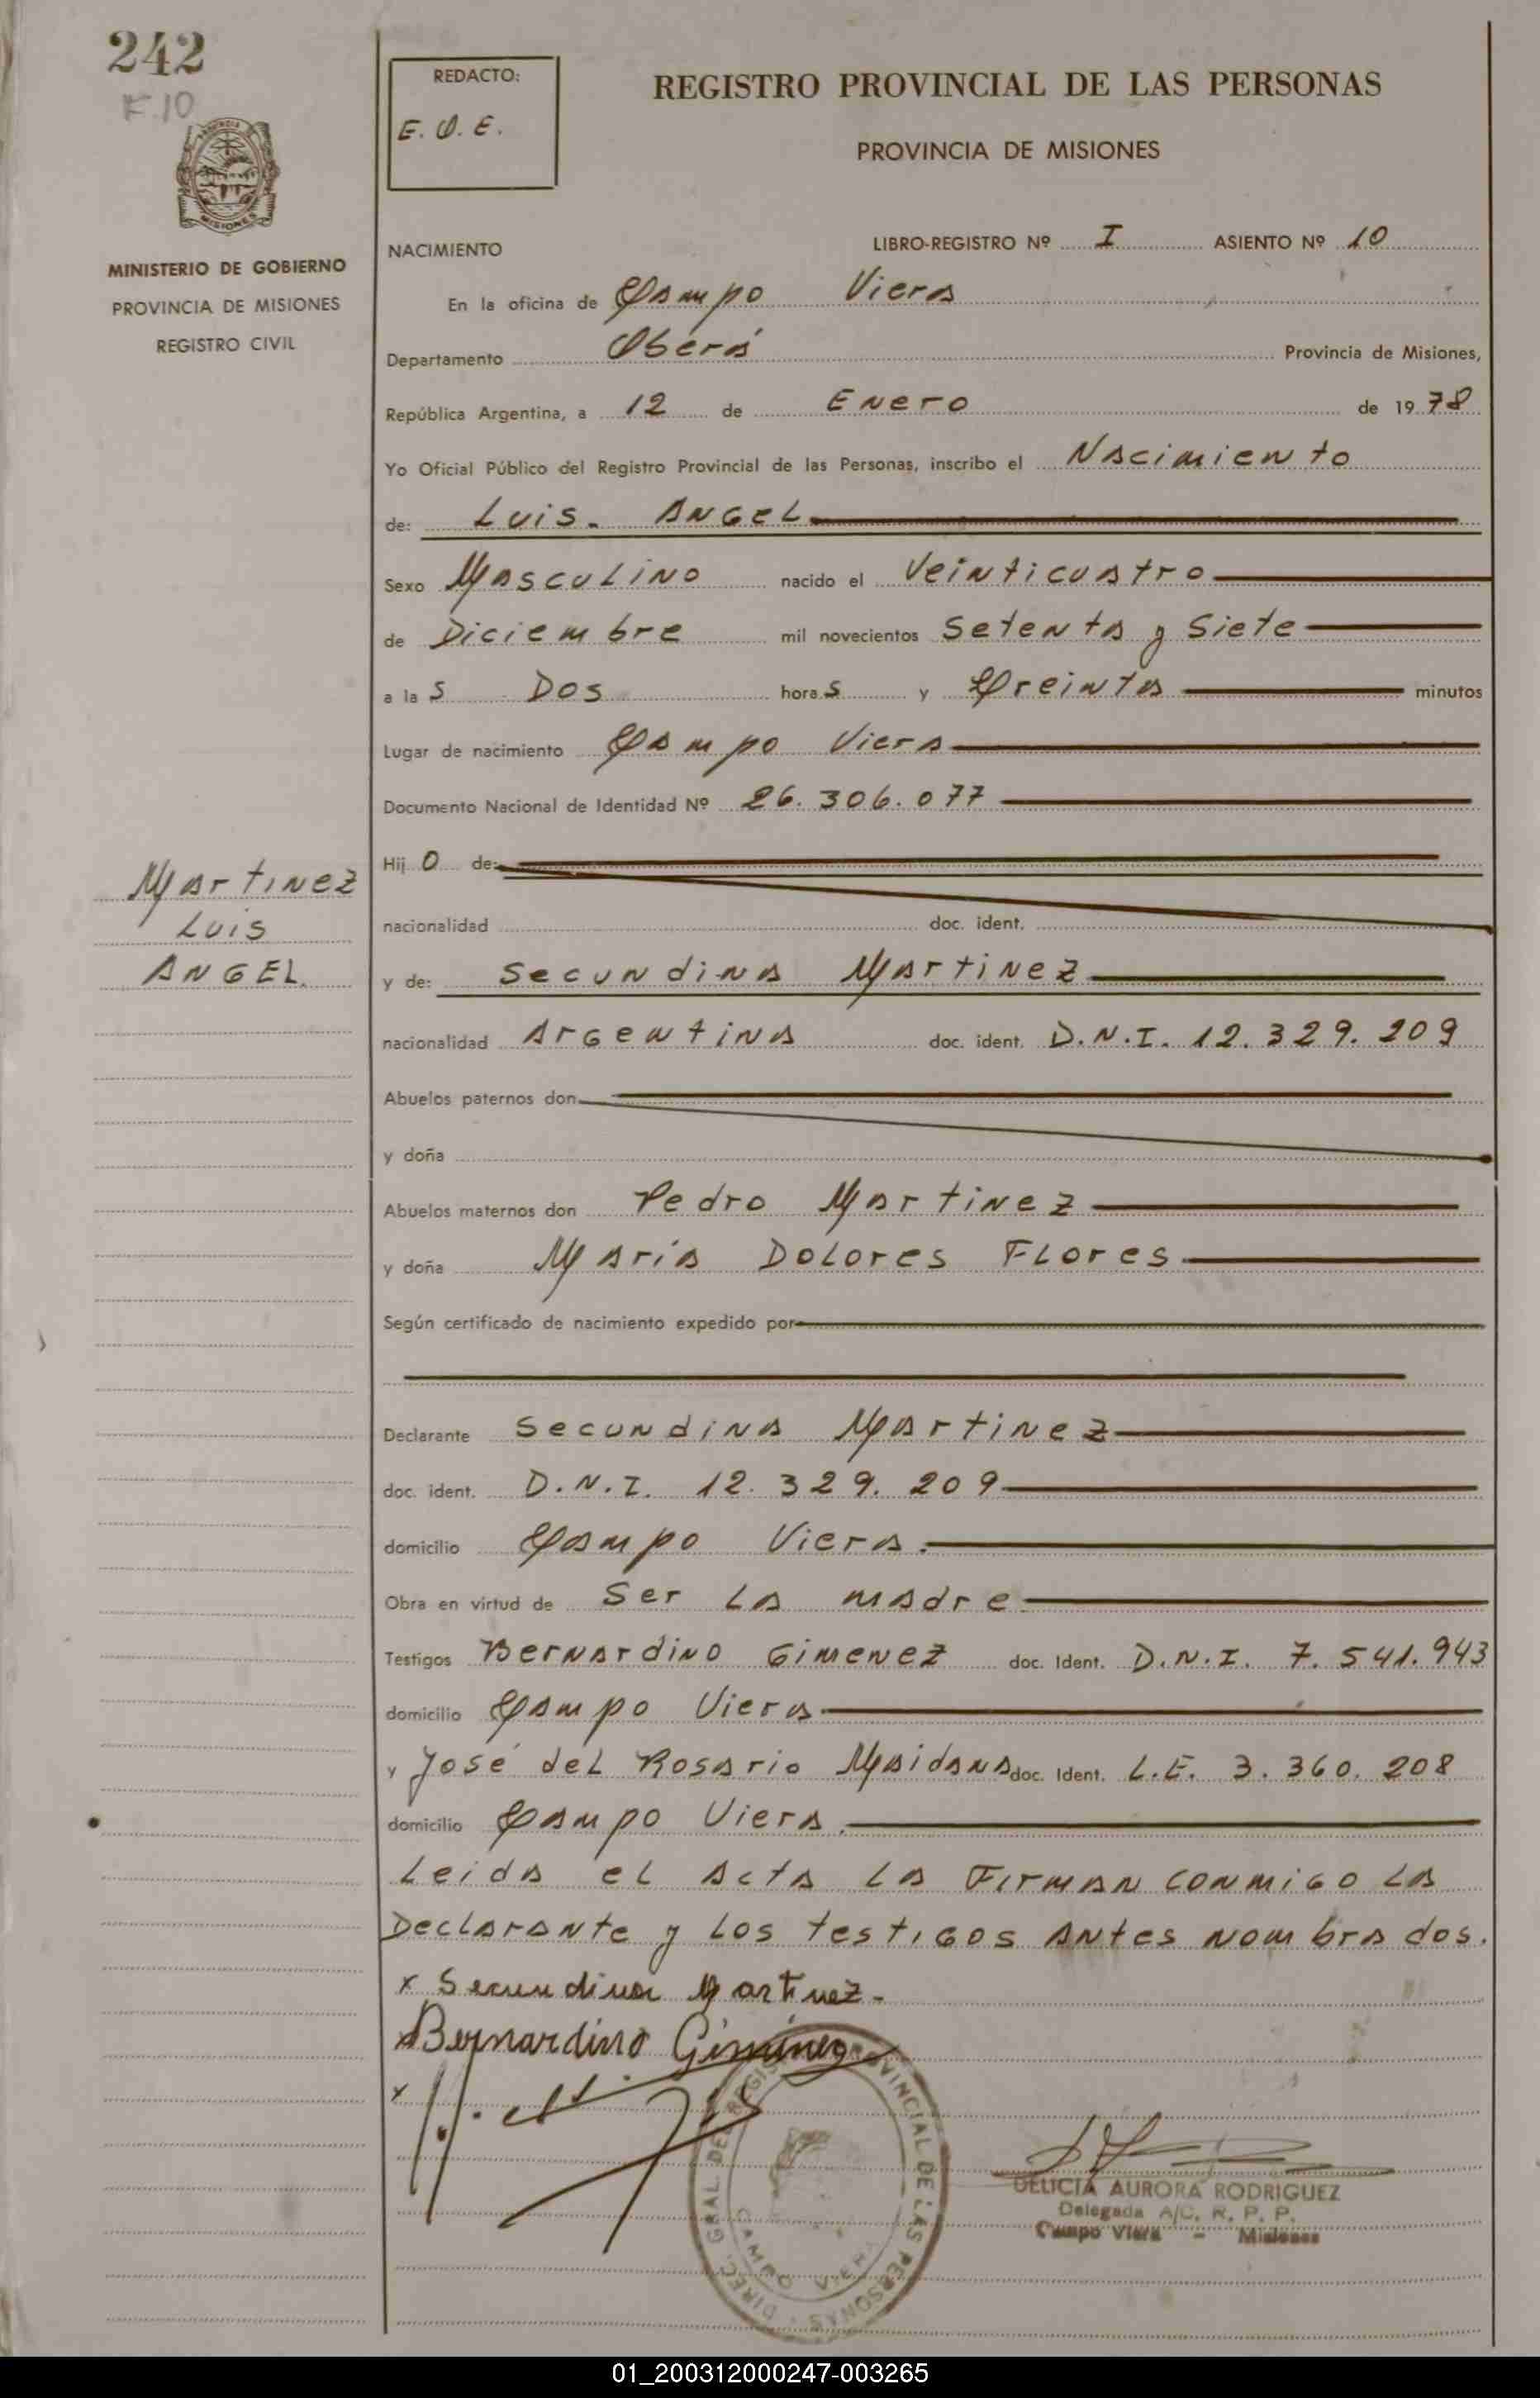 242
F.10
REDACTO:
E. O. E.
REGISTRO PROVINCIAL DE LAS PERSONAS
PROVINCIA DE MISIONES
MISIONES
MINISTERIO DE GOBIERNO
PROVINCIA DE MISIONES
REGISTRO CIVIL
NACIMIENTO
LIBRO-REGISTRO Nº I ASIENTO Nº 10
En la oficina de Campo Viera
Departamento Oberá Provincia de Misiones,
República Argentina, a 12 de Enero de 1978
Yo Oficial Público del Registro Provincial de las Personas, inscribo el Nacimiento
de: Luis. ANGEL
Sexo Masculino nacido el Veinticuatro
de Diciembre mil novecientos Setenta y Siete
a la s Dos hora s y Treinta minutos
Lugar de nacimiento Campo Viera
Documento Nacional de Identidad Nº 26.306.077
Hij o de:
nacionalidad doc. ident.
Martinez
Luis
ANGEL.
y de: Secundina Martinez
nacionalidad Argentina doc. ident. D.N.I. 12.329.209
Abuelos paternos don
y doña
Abuelos maternos don Pedro Martinez
y doña Maria Dolores Flores
Según certificado de nacimiento expedido por
Declarante Secundina Martinez
doc. ident. D.N.I. 12.329.209
domicilio Campo Viera.
Obra en virtud de Ser la madre
Testigos Bernardino Gimenez doc. Ident. D.N.I. 7.541.943
domicilio Campo Viera
y José del Rosario Maidana doc. Ident. L.E. 3.360.208
domicilio Campo Viera.
Leida el acta la Firman conmigo la
Declarante y los testigos antes nombrados.
x Secundina Martinez.
x Bernardino Gimenez
x
DIREC. GRAL. DEL REGISTRO PROVINCIAL DE LAS PERSONAS
CAMPO VIERA
DELICIA AURORA RODRIGUEZ
Delegada A/C. R. P. P.
Campo Viera - Misiones
01_200312000247-003265